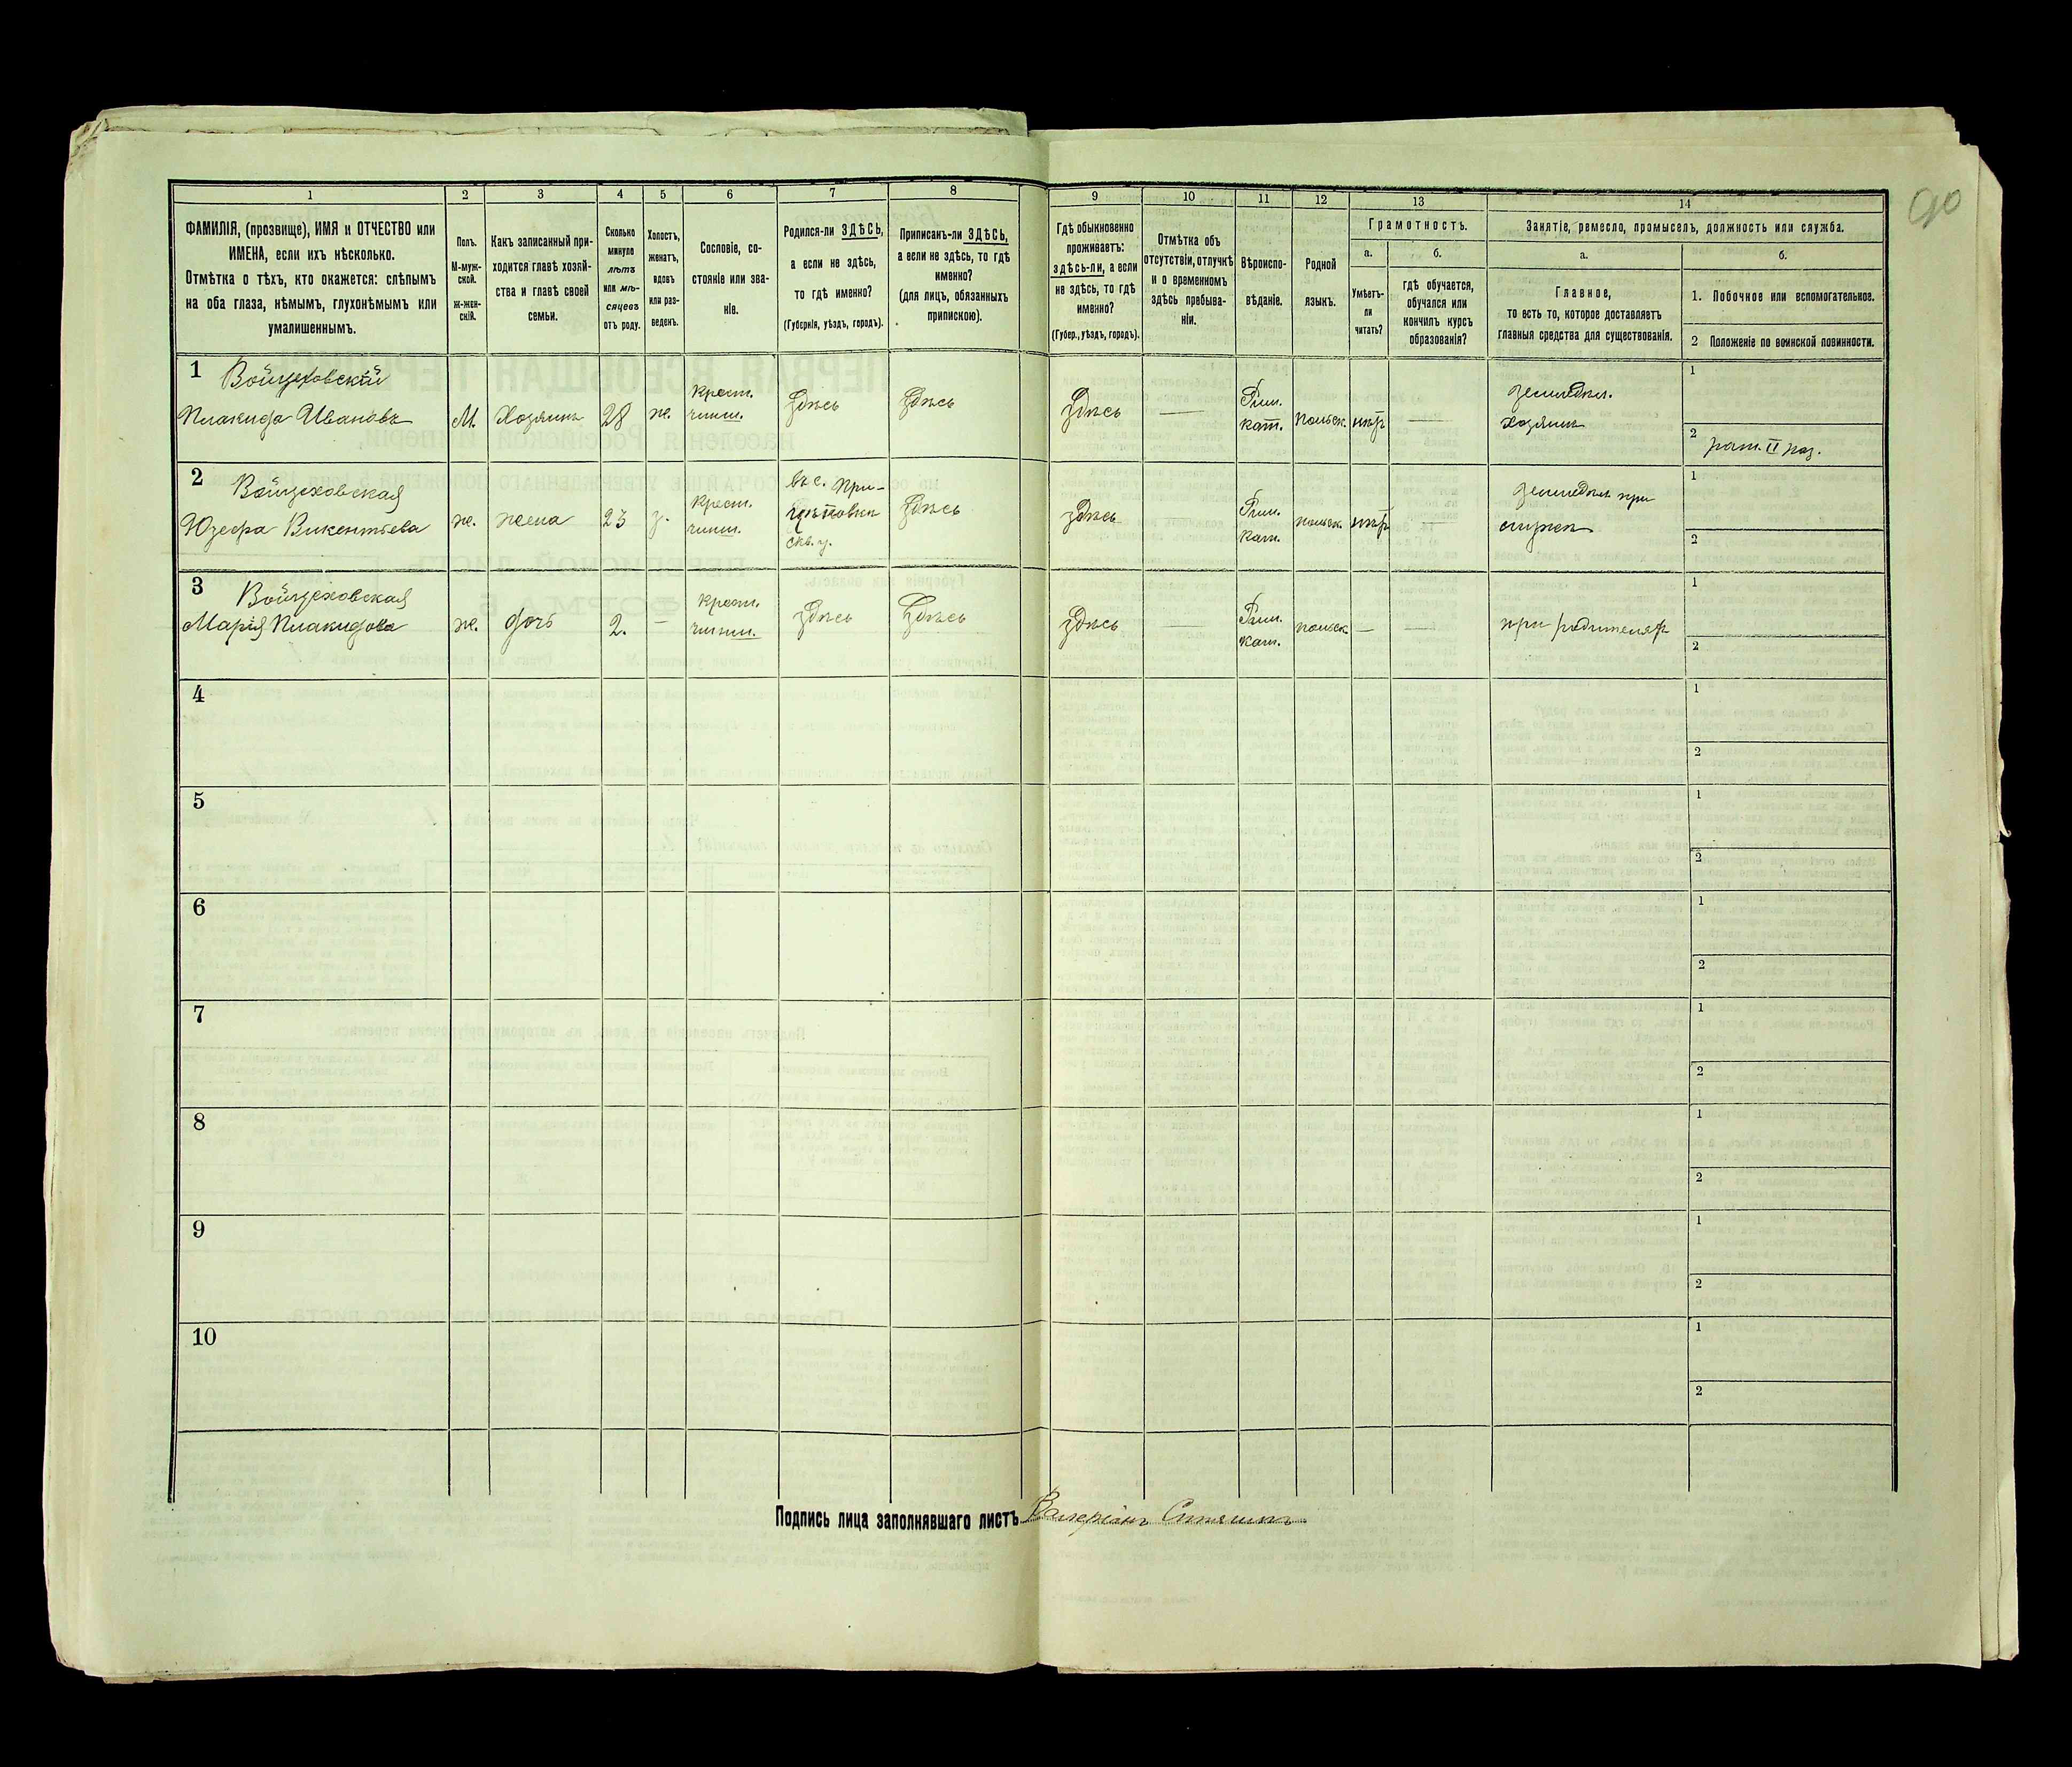 90
1 2 3 4 5 6 7 8 9 10 11 12 13 14
ФАМИЛІЯ, (прозвище), ИМЯ и ОТЧЕСТВО или
ИМЕНА, если ихъ нѣсколько.
Отмѣтка о тѣхъ, кто окажется: слѣпымъ
на оба глаза, нѣмымъ, глухонѣмымъ или
умалишеннымъ.
Полъ.
М-муж-
ской.
ж-жен-
скій.
Какъ записанный при-
ходится главѣ хозяй-
ства и главѣ своей
семьи.
Сколько
минуло
лѣтъ
или мѣ-
сяцевъ
отъ роду.
Холостъ,
женатъ,
вдовъ
или раз-
веденъ.
Сословіе, со-
стояніе или зва-
ніе.
Родился-ли ЗДѢСЬ,
а если не здѣсь,
то гдѣ именно?
(Губернія, уѣздъ, городъ).
Приписанъ-ли ЗДѢСЬ,
а если не здѣсь, то гдѣ
именно?
(для лицъ, обязанныхъ
припискою).
Гдѣ обыкновенно
проживаетъ:
здѣсь-ли, а если
не здѣсь, то гдѣ
именно?
(Губер., уѣздъ, городъ).
Отмѣтка объ
отсутствіи, отлучкѣ
и о временномъ
здѣсь пребыва-
ніи.
Вѣроиспо-
вѣданіе.
Родной
языкъ.
Грамотность.
а.
Умѣетъ-
ли
читать?
б.
гдѣ обучается,
обучался или
кончилъ курсъ
образованія?
Занятіе, ремесло, промыселъ, должность или служба.
а.
Главное,
то есть то, которое доставляетъ
главныя средства для существованія.
б.
1. Побочное или вспомогательное.
2 Положеніе по воинской повинности.
1 Войцеховскій
Плакида Ивановъ
М.
Хозяинъ
28
ж.
крест.
здѣсь
здѣсь
здѣсь
—
Рим.
кат.
польск.
—
земледѣл.
хозяинъ
1
2 рат. II раз.
2 Войцеховская
Юзефа Викентьева
ж.
жена
23
з.
крест.
въ с. При-
скв. у.
здѣсь
здѣсь
—
Рим.
кат.
польск.
—
земледѣл. при
мужѣ
1
2
3 Войцеховская
Марія Плакидова
ж.
дочь
2.
—
крест.
здѣсь
здѣсь
здѣсь
—
Рим.
кат.
польск.
—
—
при родителях
1
2
4
1
2
5
1
2
6
1
2
7
1
2
8
1
2
9
1
2
10
1
2
Подпись лица заполнявшаго листъ Валеріанъ